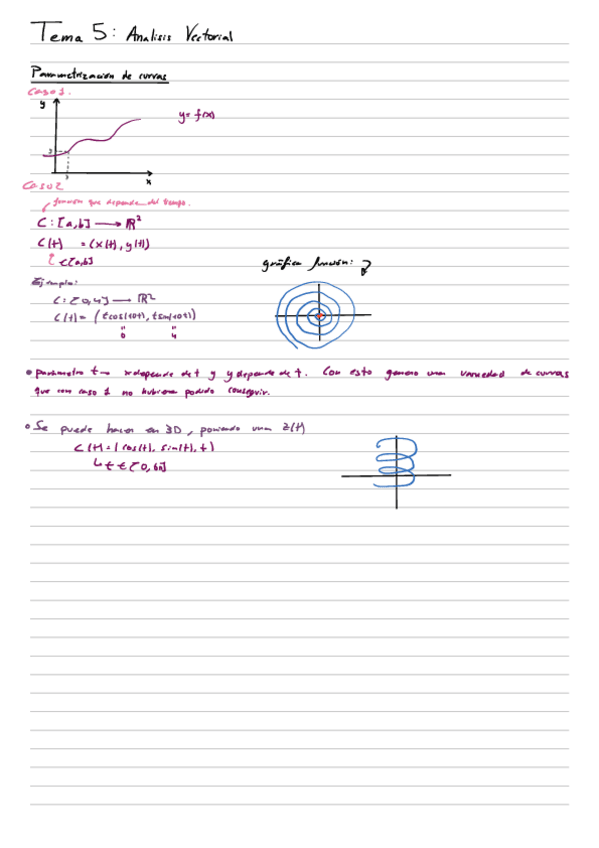 Tema 5: Analisis Vectorial
Parametrización de curvas
Caso 1.
y
y = f(x)
x
Caso 2
función que depende del tiempo.
C: [a,b] → R²
C(t) = (x(t), y(t))
t ∈ [a,b]
gráfica función:
Ejemplo:
C: [0,4] → R²
C(t) = (t cos(10t), t sin(10t))
• parámetro t → x depende de t y y depende de t. Con esto genero una variedad de curvas
que con caso 1 no hubiera podido conseguir.
• Se puede hacer en 3D, poniendo una z(t)
C(t) = (cos(t), sin(t), t)
↳ t ∈ [0, 6π]